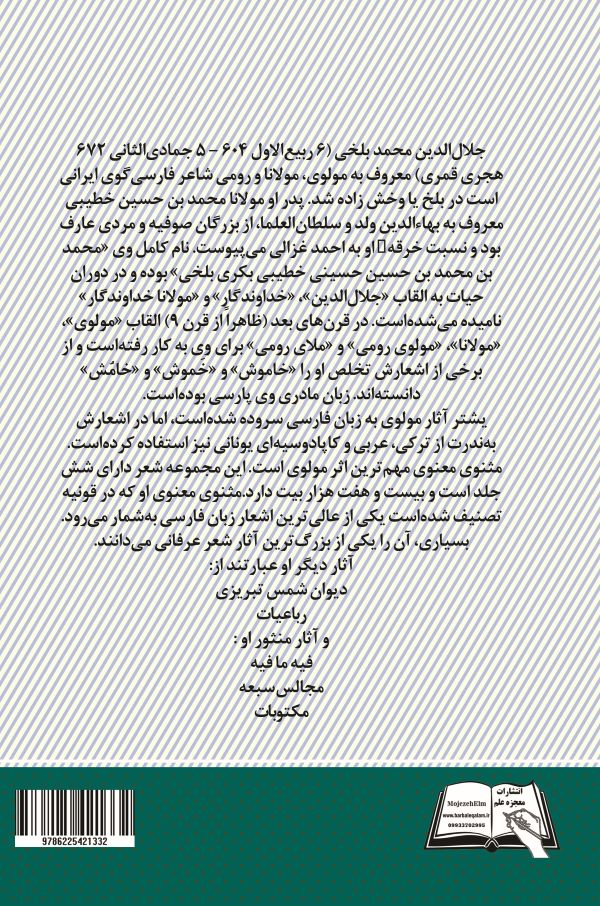 جلال‌الدین محمد بلخی (۶ ربیع‌الاول ۶۰۴ – ۵ جمادی‌الثانی ۶۷۲
هجری قمری) معروف به مولوی، مولانا و رومی شاعر فارسی‌گوی ایرانی
است در بلخ یا وخش زاده شد. پدر او مولانا محمد بن حسین خطیبی
معروف به بهاءالدین ولد و سلطان‌العلما، از بزرگان صوفیه و مردی عارف
بود و نسبت خرقه او به احمد غزالی می‌پیوست. نام کامل وی «محمد
بن محمد بن حسین حسینی خطیبی بکری بلخی» بوده و در دوران
حیات به القاب «جلال‌الدین»، «خداوندگار» و «مولانا خداوندگار»
نامیده می‌شده‌است. در قرن‌های بعد (ظاهراً از قرن ۹) القاب «مولوی»،
«مولانا»، «مولوی رومی» و «ملای رومی» برای وی به کار رفته‌است و از
برخی از اشعارش تخلص او را «خاموش» و «خَموش» و «خامُش»
دانسته‌اند. زبان مادری وی پارسی بوده‌است.
یشتر آثار مولوی به زبان فارسی سروده شده‌است، اما در اشعارش
به‌ندرت از ترکی، عربی و کاپادوسیه‌ای یونانی نیز استفاده کرده‌است.
مثنوی معنوی مهم‌ترین اثر مولوی است. این مجموعه شعر دارای شش
جلد است و بیست و هفت هزار بیت دارد.مثنوی معنوی او که در قونیه
تصنیف شده‌است یکی از عالی‌ترین اشعار زبان فارسی به‌شمار می‌رود.
بسیاری، آن را یکی از بزرگ‌ترین آثار شعر عرفانی می‌دانند.
آثار دیگر او عبارتند از:
دیوان شمس تبریزی
رباعیات
و آثار منثور او :
فیه ما فیه
مجالس سبعه
مکتوبات
انتشارات
معجزه علم
MojezehElm
www.barbaleqalam.ir
09933702995
9786225421332